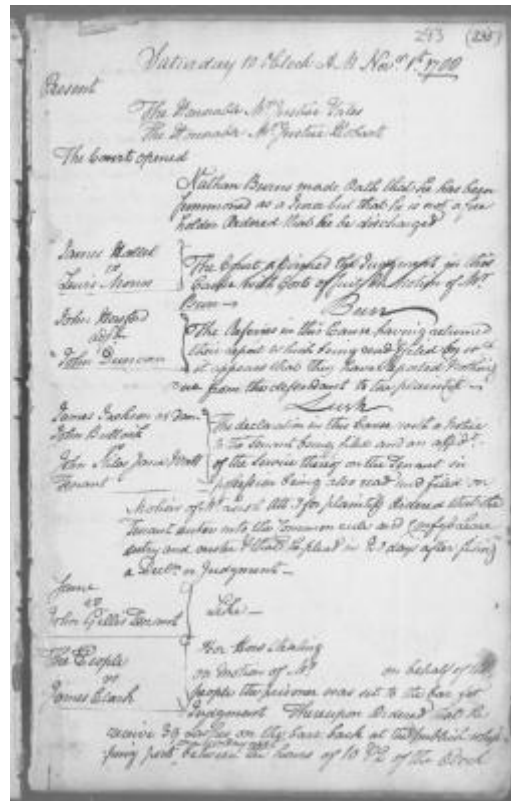 293 (235)
Saturday 10 oClock A M Novr 1st 1788
Present
The Honorable Mr Justice Yates
The Honorable Mr Justice Hobart
The Court opened
Nathan Burns made Oath that he has been
summoned as a Juror but that he is not a free
holder Ordered that he be discharged
James
vs
Lewis Morris
The Court affirmed the Judgement in this
Cause with Costs of suit on Motion of Mr
Burr
Burr
John
ads
John Duncan
The Referees in this Cause having returned
their report which being read & filed by
it appears that they have reported nothing
due from the defendant to the plaintiff
Lush
James Jackson ex dem
John Bullock
vs
John
Tenant
The declaration in this Cause with a Notice
to the tenant being filed and an affidt
of the service thereof on the Tenant in
possession being also read and filed on
Motion of Mr for plaintiff Ordered that the
Tenant enter into the Common rule and Confess lease
entry and ouster & that he plead in 20 days after
a Decln or Judgment
Same
vs
John Gillis Tenant
Like
The People
vs
James Clark
For Horse Stealing
on motion of Mr on behalf of the
people the prisoner was set to the bar for
Judgment Thereupon Ordered that he
receive 39 Lashes on the bare back at the publick whip-
ping post between the hours of 10 & 12 of the Clock